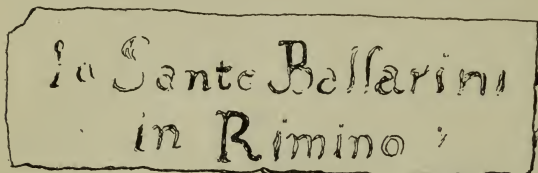 Io Sante Ballarini
in Rimino :